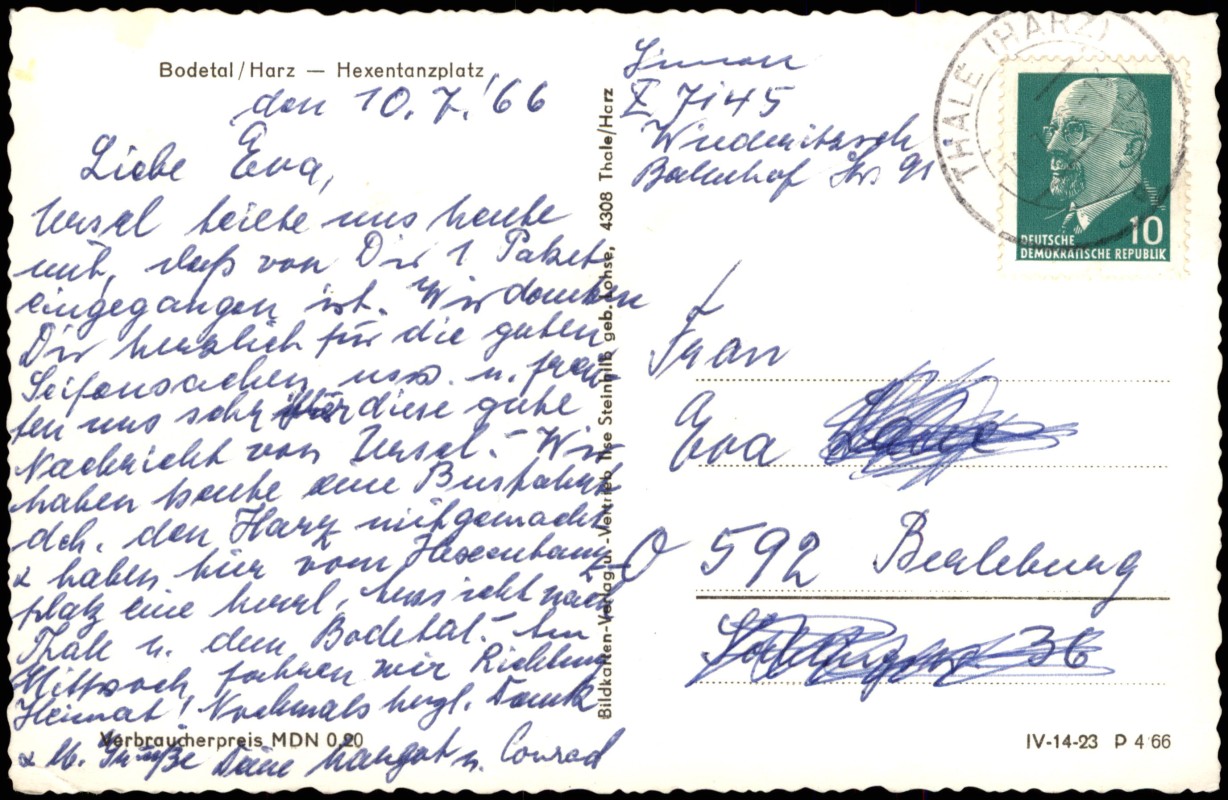 Bodetal/Harz — Hexentanzplatz
den 10.7.'66
Liebe Eva,
Ursel teilte uns heute
mit, daß von Dir 1 Paket
eingegangen ist. Wir danken
Dir herzlich für die guten
Seifensachen usw. u. freu-
ten uns sehr über diese gute
Nachricht von Ursel.- Wir
haben heute eine Busfahrt
dch. den Harz mitgemacht
& haben hier vom Hexentanz-
platz eine herrl. Aussicht nach
Thale u. dem Bodetal.- Am
Mittwoch fahren wir Richtung
Heimat! Nochmals herzl. Dank
& lb. Grüße Deine Margot u. Conrad
Verbraucherpreis MDN 0,20
Bildkarten-Verlag u.-Vertrieb Ilse Steingilb geb. Lohse, 4308 Thale/Harz
Simon
X 7145
Wiederitzsch
Bahnhof Str 91
THALE (HARZ)
DEUTSCHE
DEMOKRATISCHE REPUBLIK
10
Frau
Eva
592 Berleburg
36
IV-14-23 P 4 66